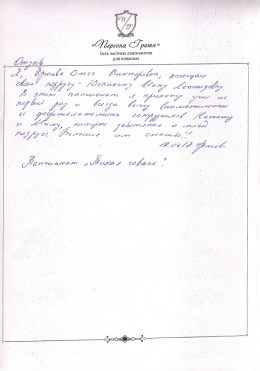 «Персона Грата»
Сеть частных пансионатов
для пожилых
Отзыв
Я, Ольга Викторовна, посещаю
свою подругу - Нину Леонидовну
В этот пансионат я прихожу уже не
первый раз и всегда вижу внимательных
и доброжелательных сотрудников
и которые заботятся о моей
подруге. Большое им спасибо!!
Пансионат "Тихая гавань".